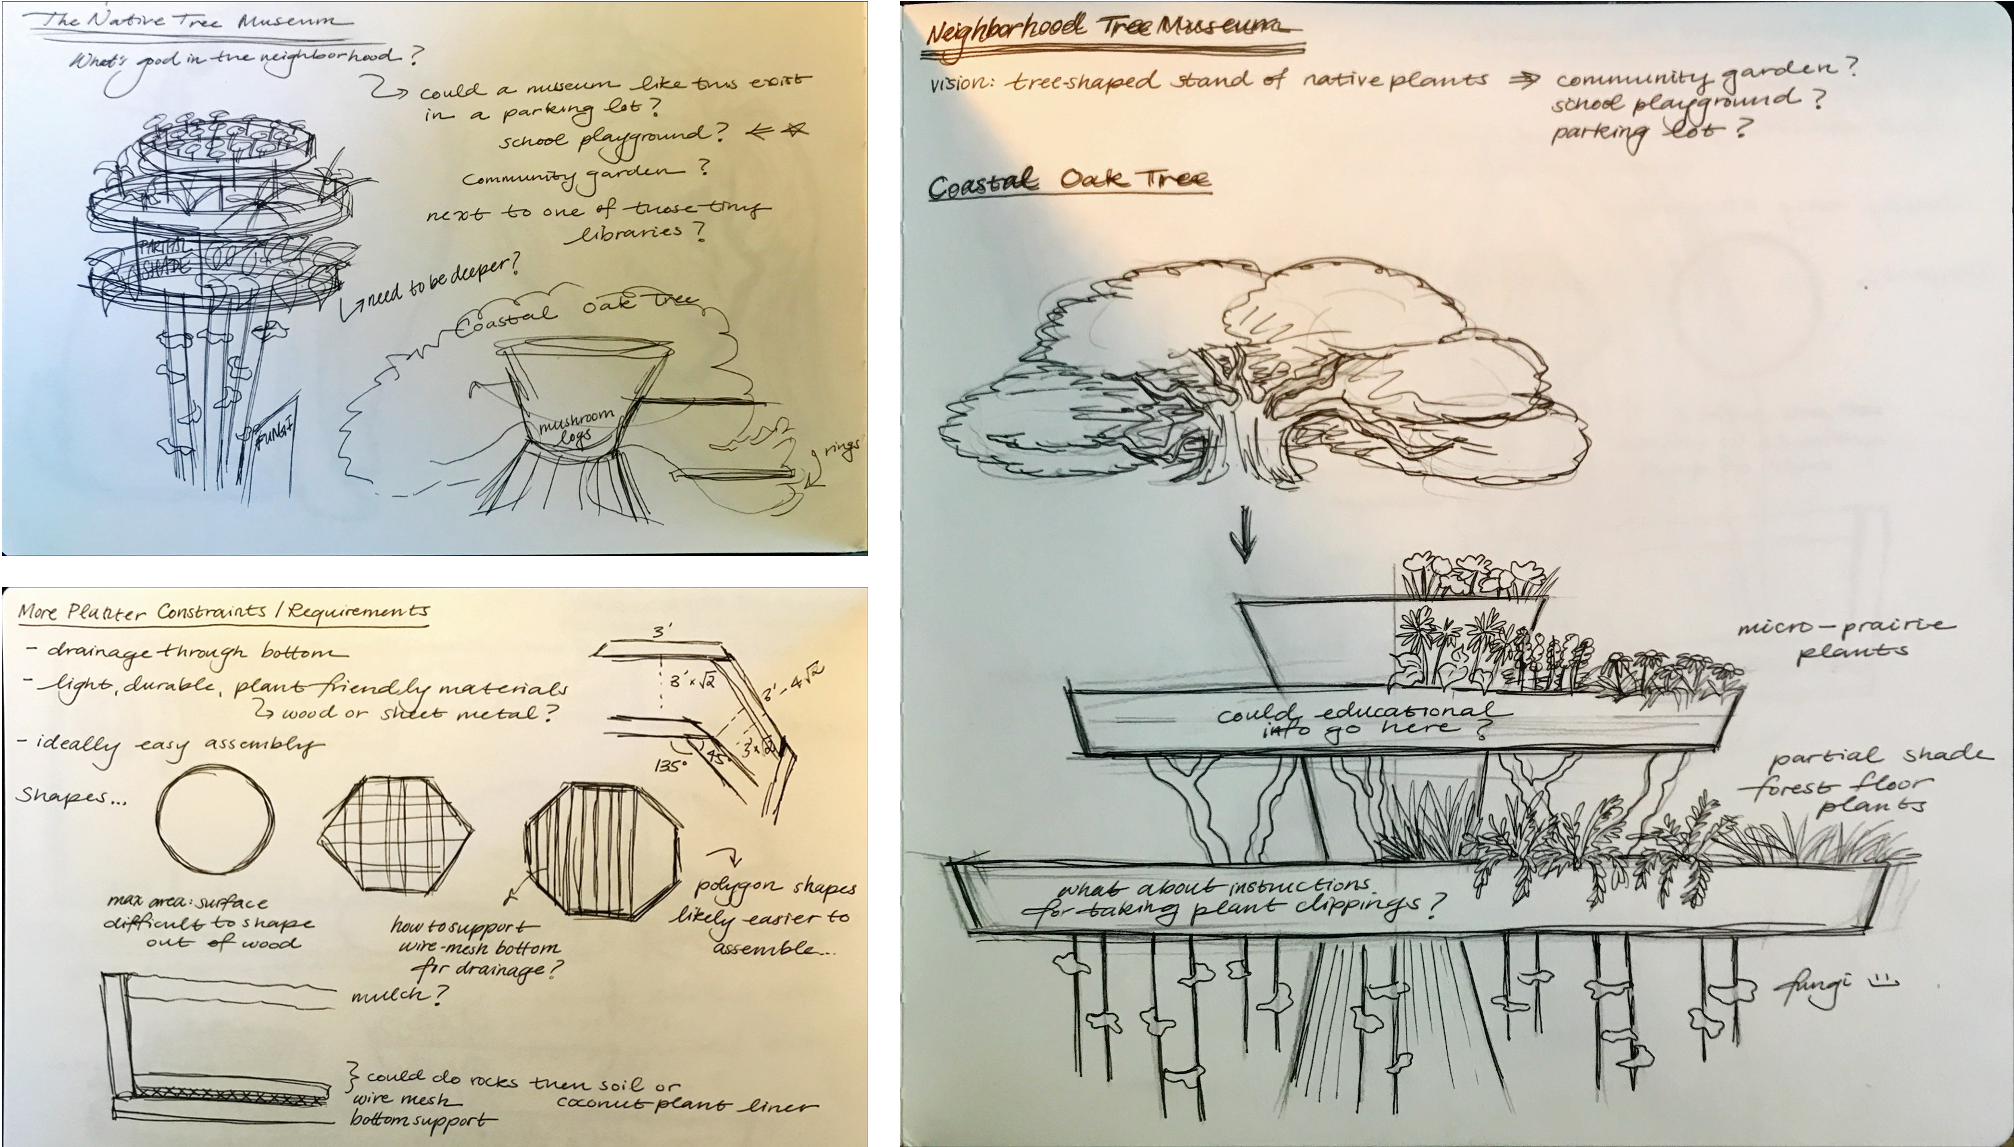 The Native Tree Museum
What's good in the neighborhood?
could a museum like this exist
in a parking lot?
school playground?
community garden?
next to one of those tiny
libraries?
PARTIAL
SHADE
need to be deeper?
Coastal Oak Tree
mushroom
logs
rings
FUNGI
More Planter Constraints/Requirements
- drainage through bottom
- light, durable, plant friendly materials
wood or sheet metal?
- ideally easy assembly
Shapes...
3'
3' x √2
3' - 4√2
3' x √2
135°
45°
max area: surface
difficult to shape
out of wood
how to support
wire-mesh bottom
for drainage?
polygon shapes
likely easier to
assemble...
mulch?
could do rocks then soil or
coconut plant liner
wire mesh
bottom support
Neighborhood Tree Museum
vision: tree-shaped stand of native plants ⇒ community garden?
school playground?
parking lot?
Coastal Oak Tree
micro-prairie
plants
could educational
info go here?
partial shade
forest floor
plants
what about instructions
for taking plant clippings?
fungi